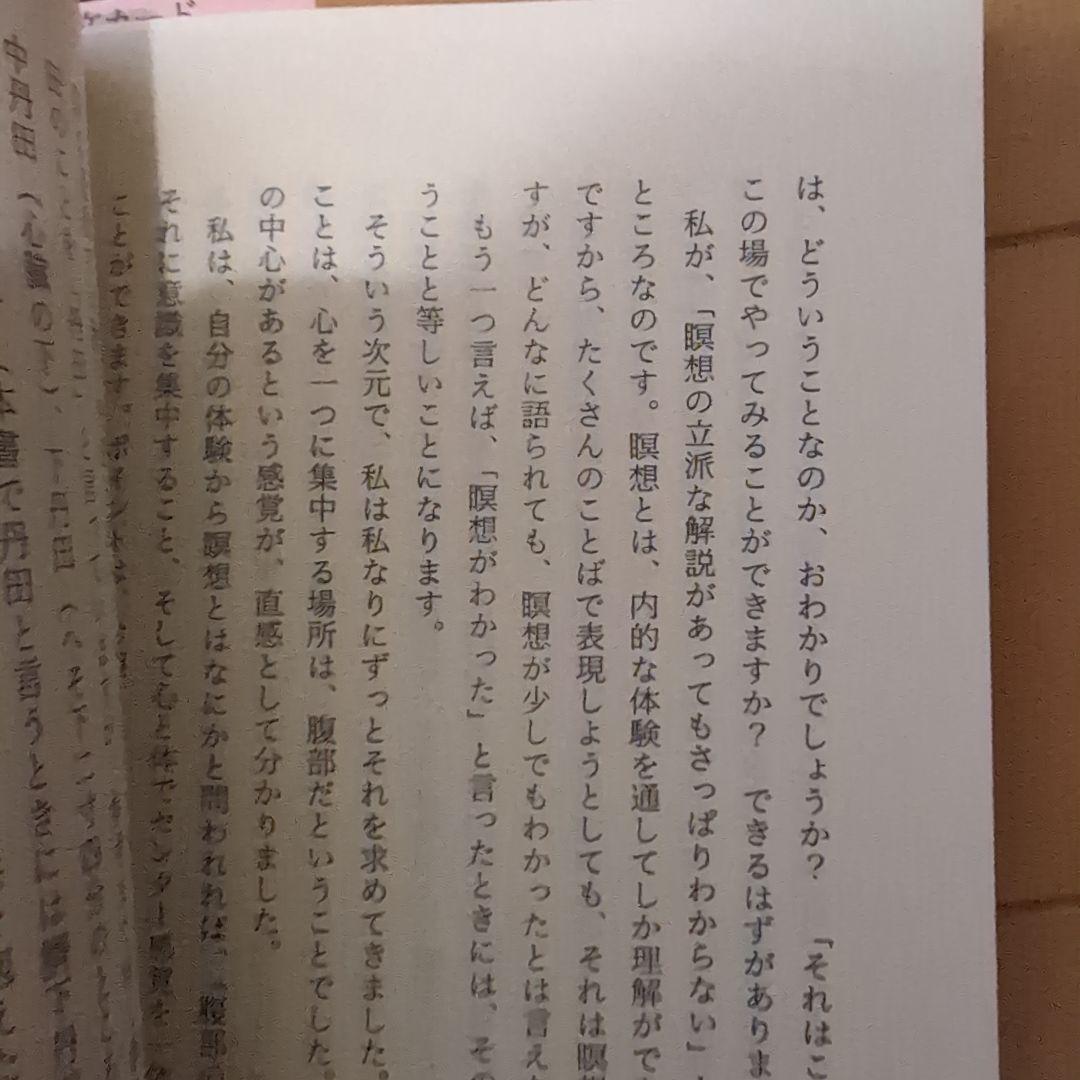 は、どういうことなのか、おわかりでしょうか？　「それはこ
この場でやってみることができますか？　できるはずがありま
私が、「瞑想の立派な解説があってもさっぱりわからない」
ところなのです。瞑想とは、内的な体験を通してしか理解がで
ですから、たくさんのことばで表現しようとしても、それは瞑
すが、どんなに語られても、瞑想が少しでもわかったとは言え
もう一つ言えば、「瞑想がわかった」と言ったときには、その
うことと等しいことになります。
そういう次元で、私は私なりにずっとそれを求めてきました。
ことは、心を一つに集中する場所は、腹部だということでした。
の中心があるという感覚が、直感として分かりました。
私は、自分の体験から瞑想とはなにかと問われれば、「腹部
それに意識を集中すること、そして心と体
ことができます。
本書で丹田と言うときには
中丹田